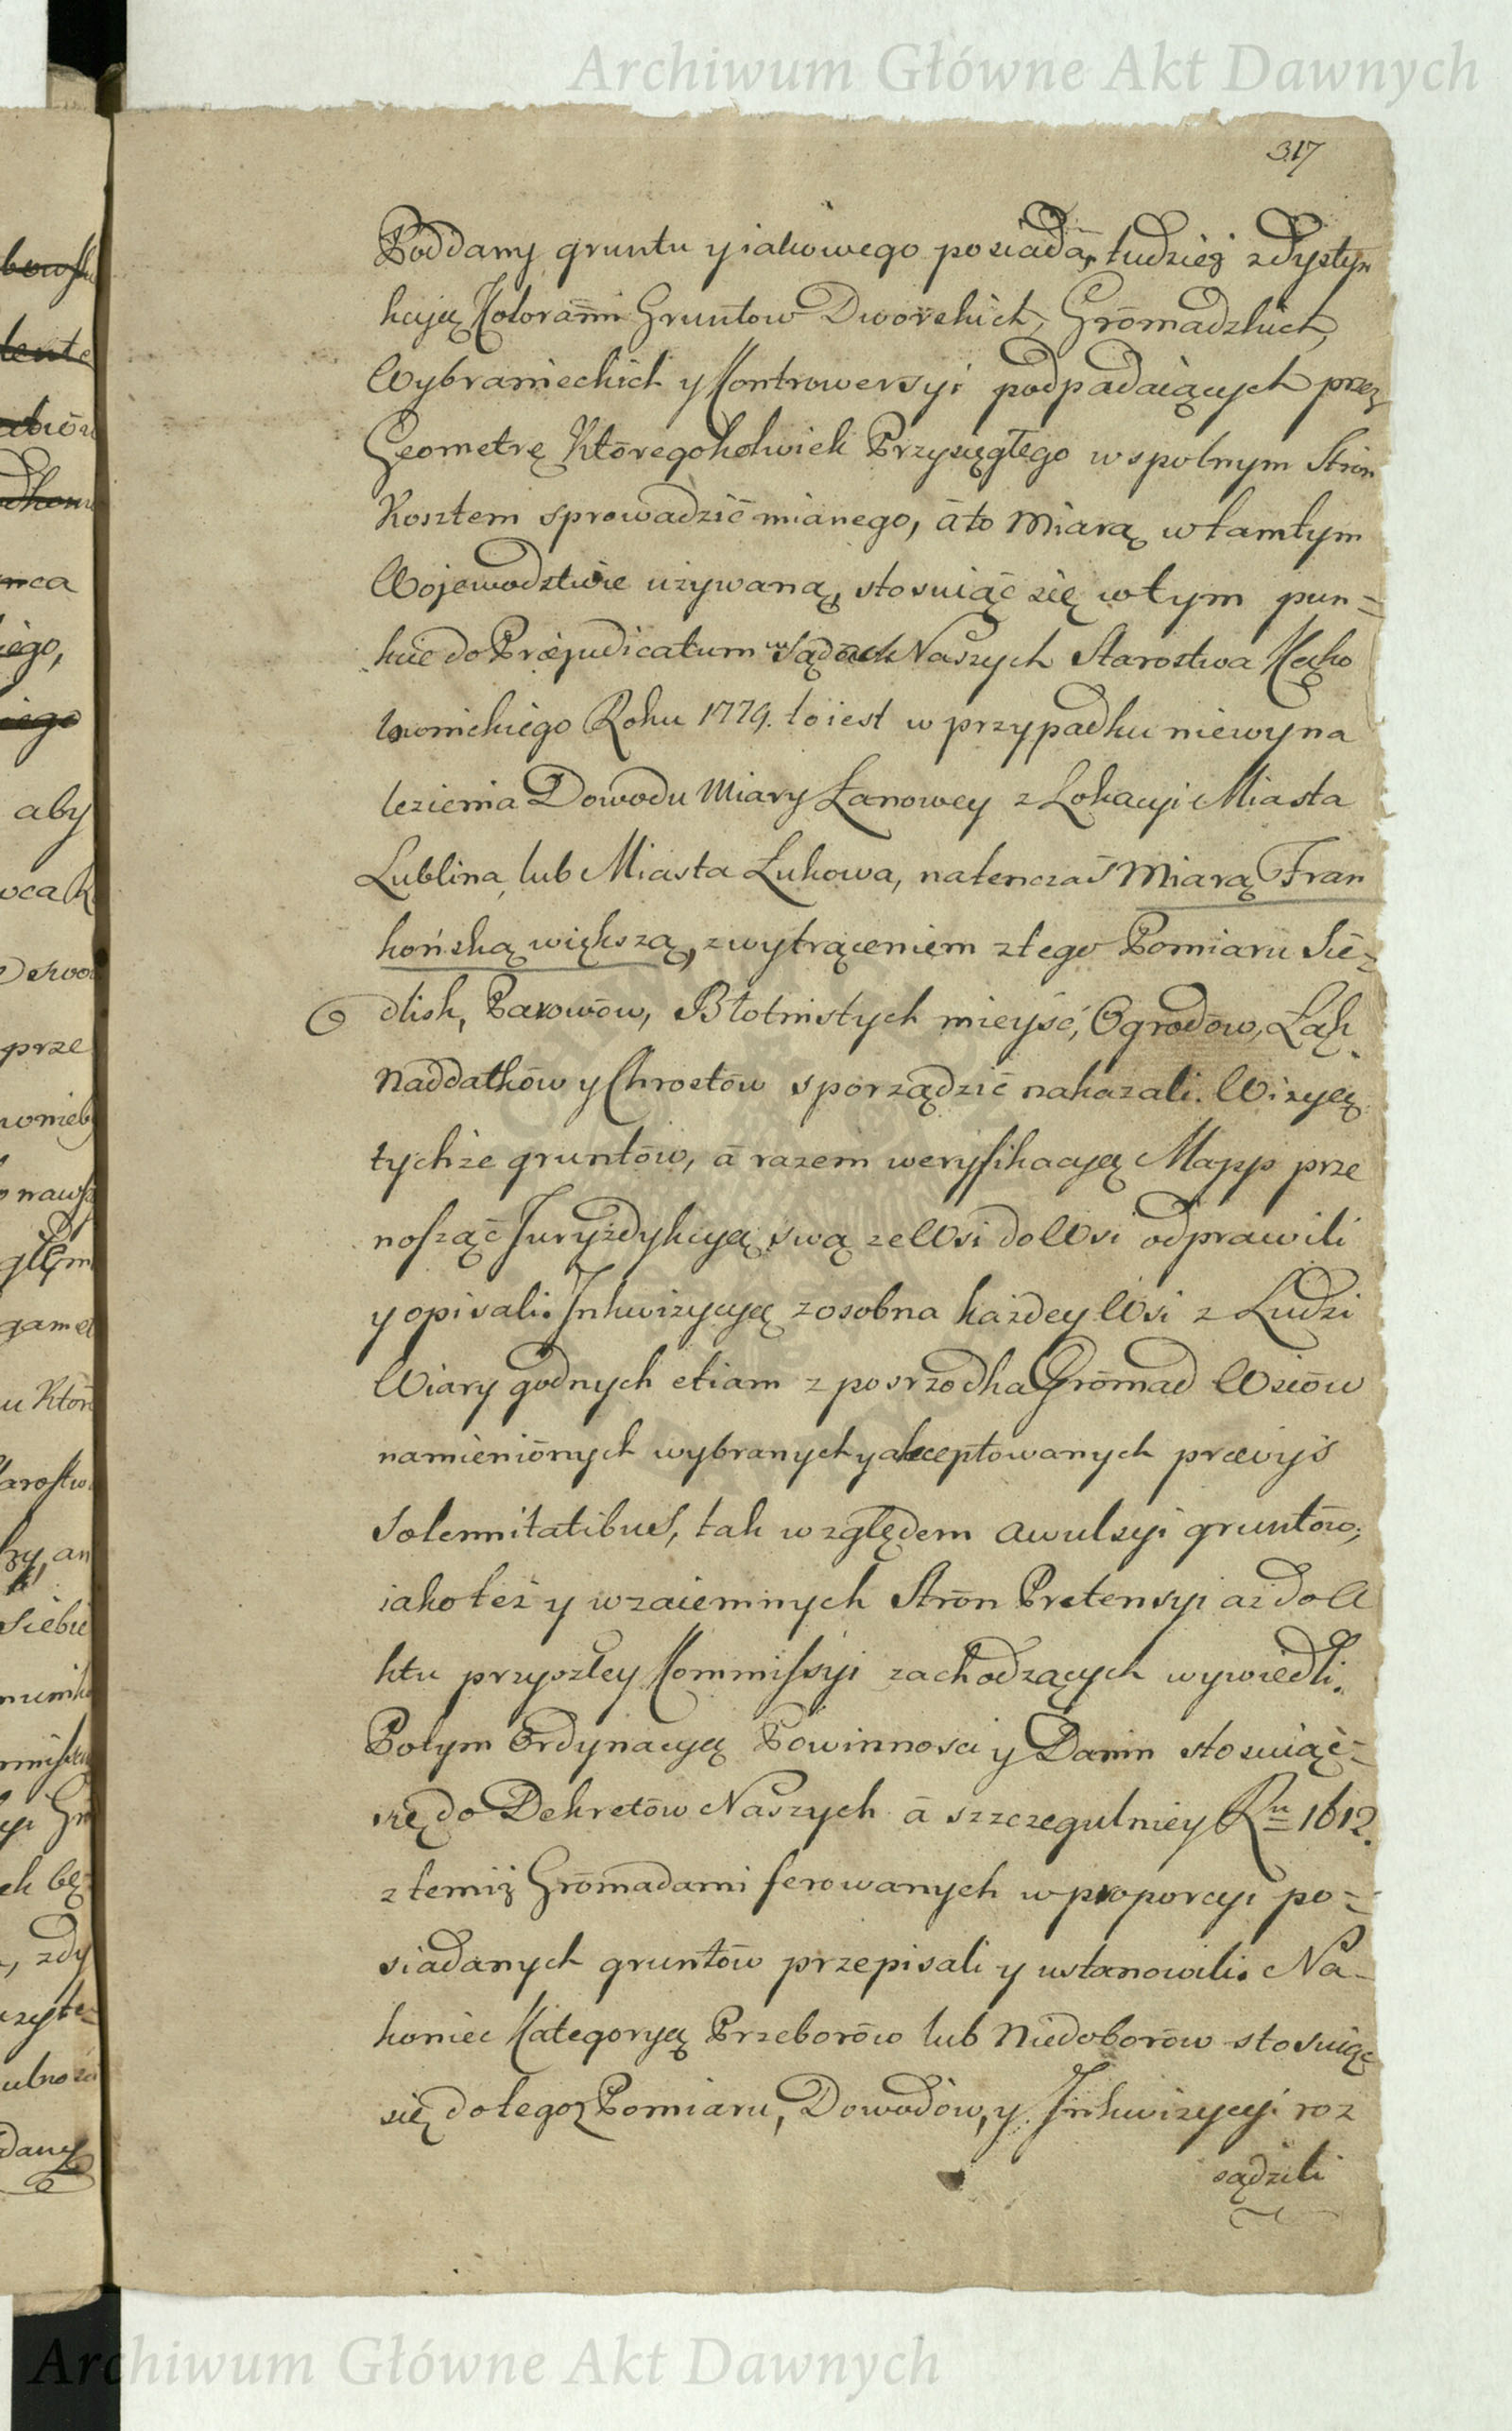 Archiwum Główne Akt Dawnych
317
Poddany gruntu y iakowego posiada, tudzież z dystyn
kcyą Kolorami Gruntow Dworskich, Gromadzkich,
Wybranieckich y Kontrowersyi podpadaiących przez
Geometrę Któregokolwiek Przysięgłego wspolnym Stron
Kosztem sprowadzić mianego, á to Miarą w tamtym
Wojewodztwie używaną, stosuiąc się w tym pun=
kcie do Præjudicatum w Sądach Naszych Starostwa Kąko
lownickiego Roku 1779. to iest w przypadku niewyna
lezienia Dowodu Miary Łanowey z Lokacyi Miasta
Lublina, lub Miasta Łukowa, natenczas Miarą Fran
końską większą, z wytrąceniem z tego Pomiaru Sie=
dlisk, Parowów, Błotnistych mieysć, Ogrodów, Łąk
Naddatków y Chrostów sporządzić nakazali. Wizyą
tychże gruntów, á razem weryfikacyą Mapp prze
nosząc Juryzdykcyą swą ze Wsi do Wsi odprawili
y opisali. Inkwizycyą zosobna każdey Wsi z Ludzi
Wiary godnych etiam z posrzodka Gromad Wsiów
namienionych wybranych y akceptowanych prævijs
Solennitatibus, tak względem awulsyi gruntów,
iako też y wzaiemnych Stron Pretensyi aż do A
ktu przyszłey Kommissyi zachodzących wywiedli.
Potym Ordynacyą Powinnosci y Danin stosuiąc=
się do Dekretów Naszych á szczegulniey Ru 1612.
z temiż Gromadami ferowanych w proporcyi po=
siadanych gruntów przepisali y ustanowili. Na=
koniec Kategoryą Przeborów lub Niedoborów stosuiąc
się do tegoż Pomiaru, Dowodów, y Inkwizycyi roz
sądzili
Archiwum Główne Akt Dawnych